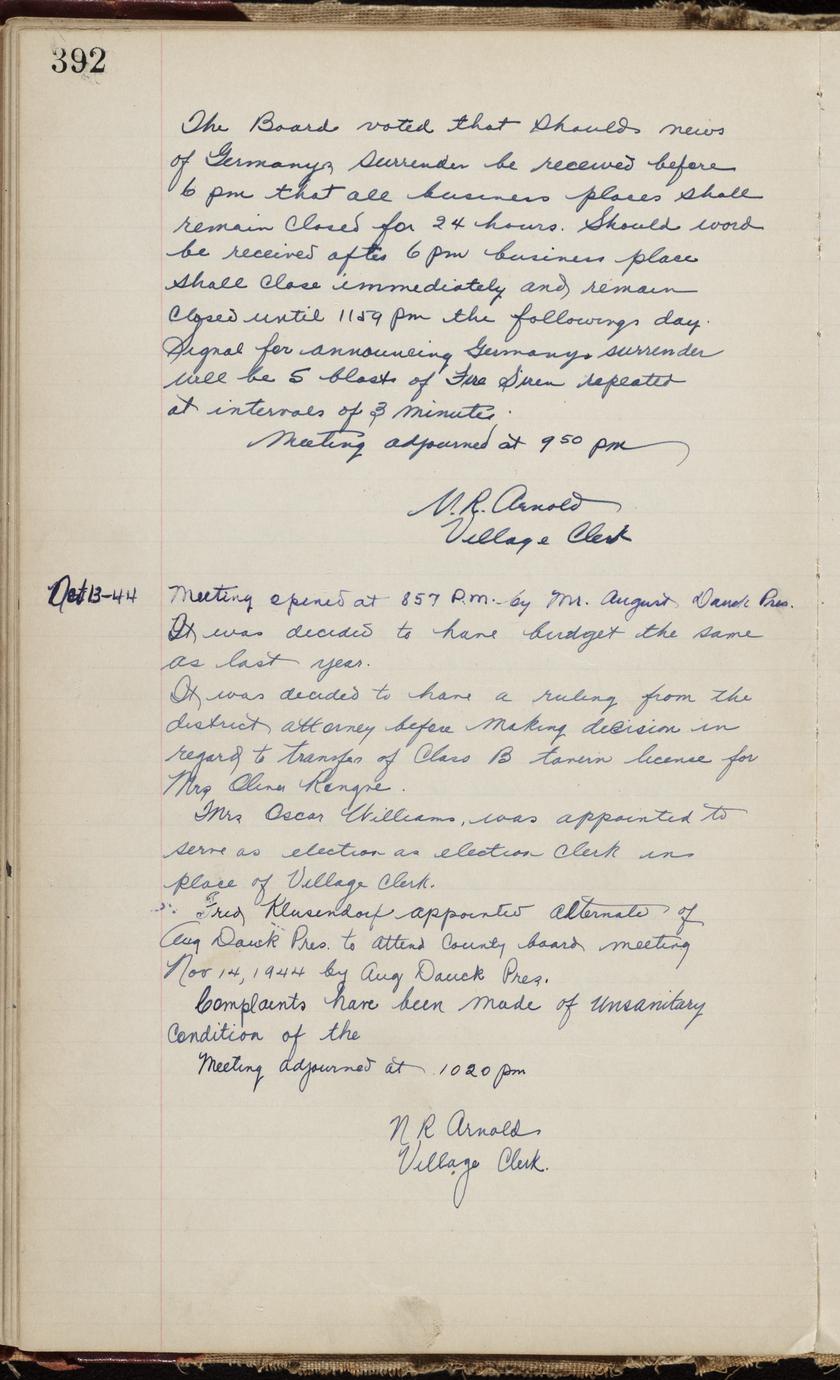 392
The Board voted that should news
of Germanys surrender be received before
6 pm that all business places shall
remain closed for 24 hours. Should word
be received after 6 pm business place
shall close immediately and remain
closed until 1159 pm the following day.
Signal for announcing Germanys surrender
will be 5 blasts of Fire Siren repeated
at intervals of 3 minutes.
Meeting adjourned at 9 50 pm
N. R. Arnold
Village Clerk
Oct 13-44 Meeting opened at 857 P.M. by Mr. August Dauck Pres.
It was decided to have budget the same
as last year.
It was decided to have a ruling from the
district attorney before making decision in
regard to transfer of Class B tavern license for
Mrs
Mrs Oscar Williams, was appointed to
serve as election as election Clerk in
place of Village Clerk.
Fred Klusendorf appointed alternate of
Aug Dauck Pres. to attend County board meeting
Nov 14, 1944 by Aug Dauck Pres.
Complaints have been made of unsanitary
Condition of the
Meeting adjourned at 1020 pm
N R Arnold
Village Clerk.